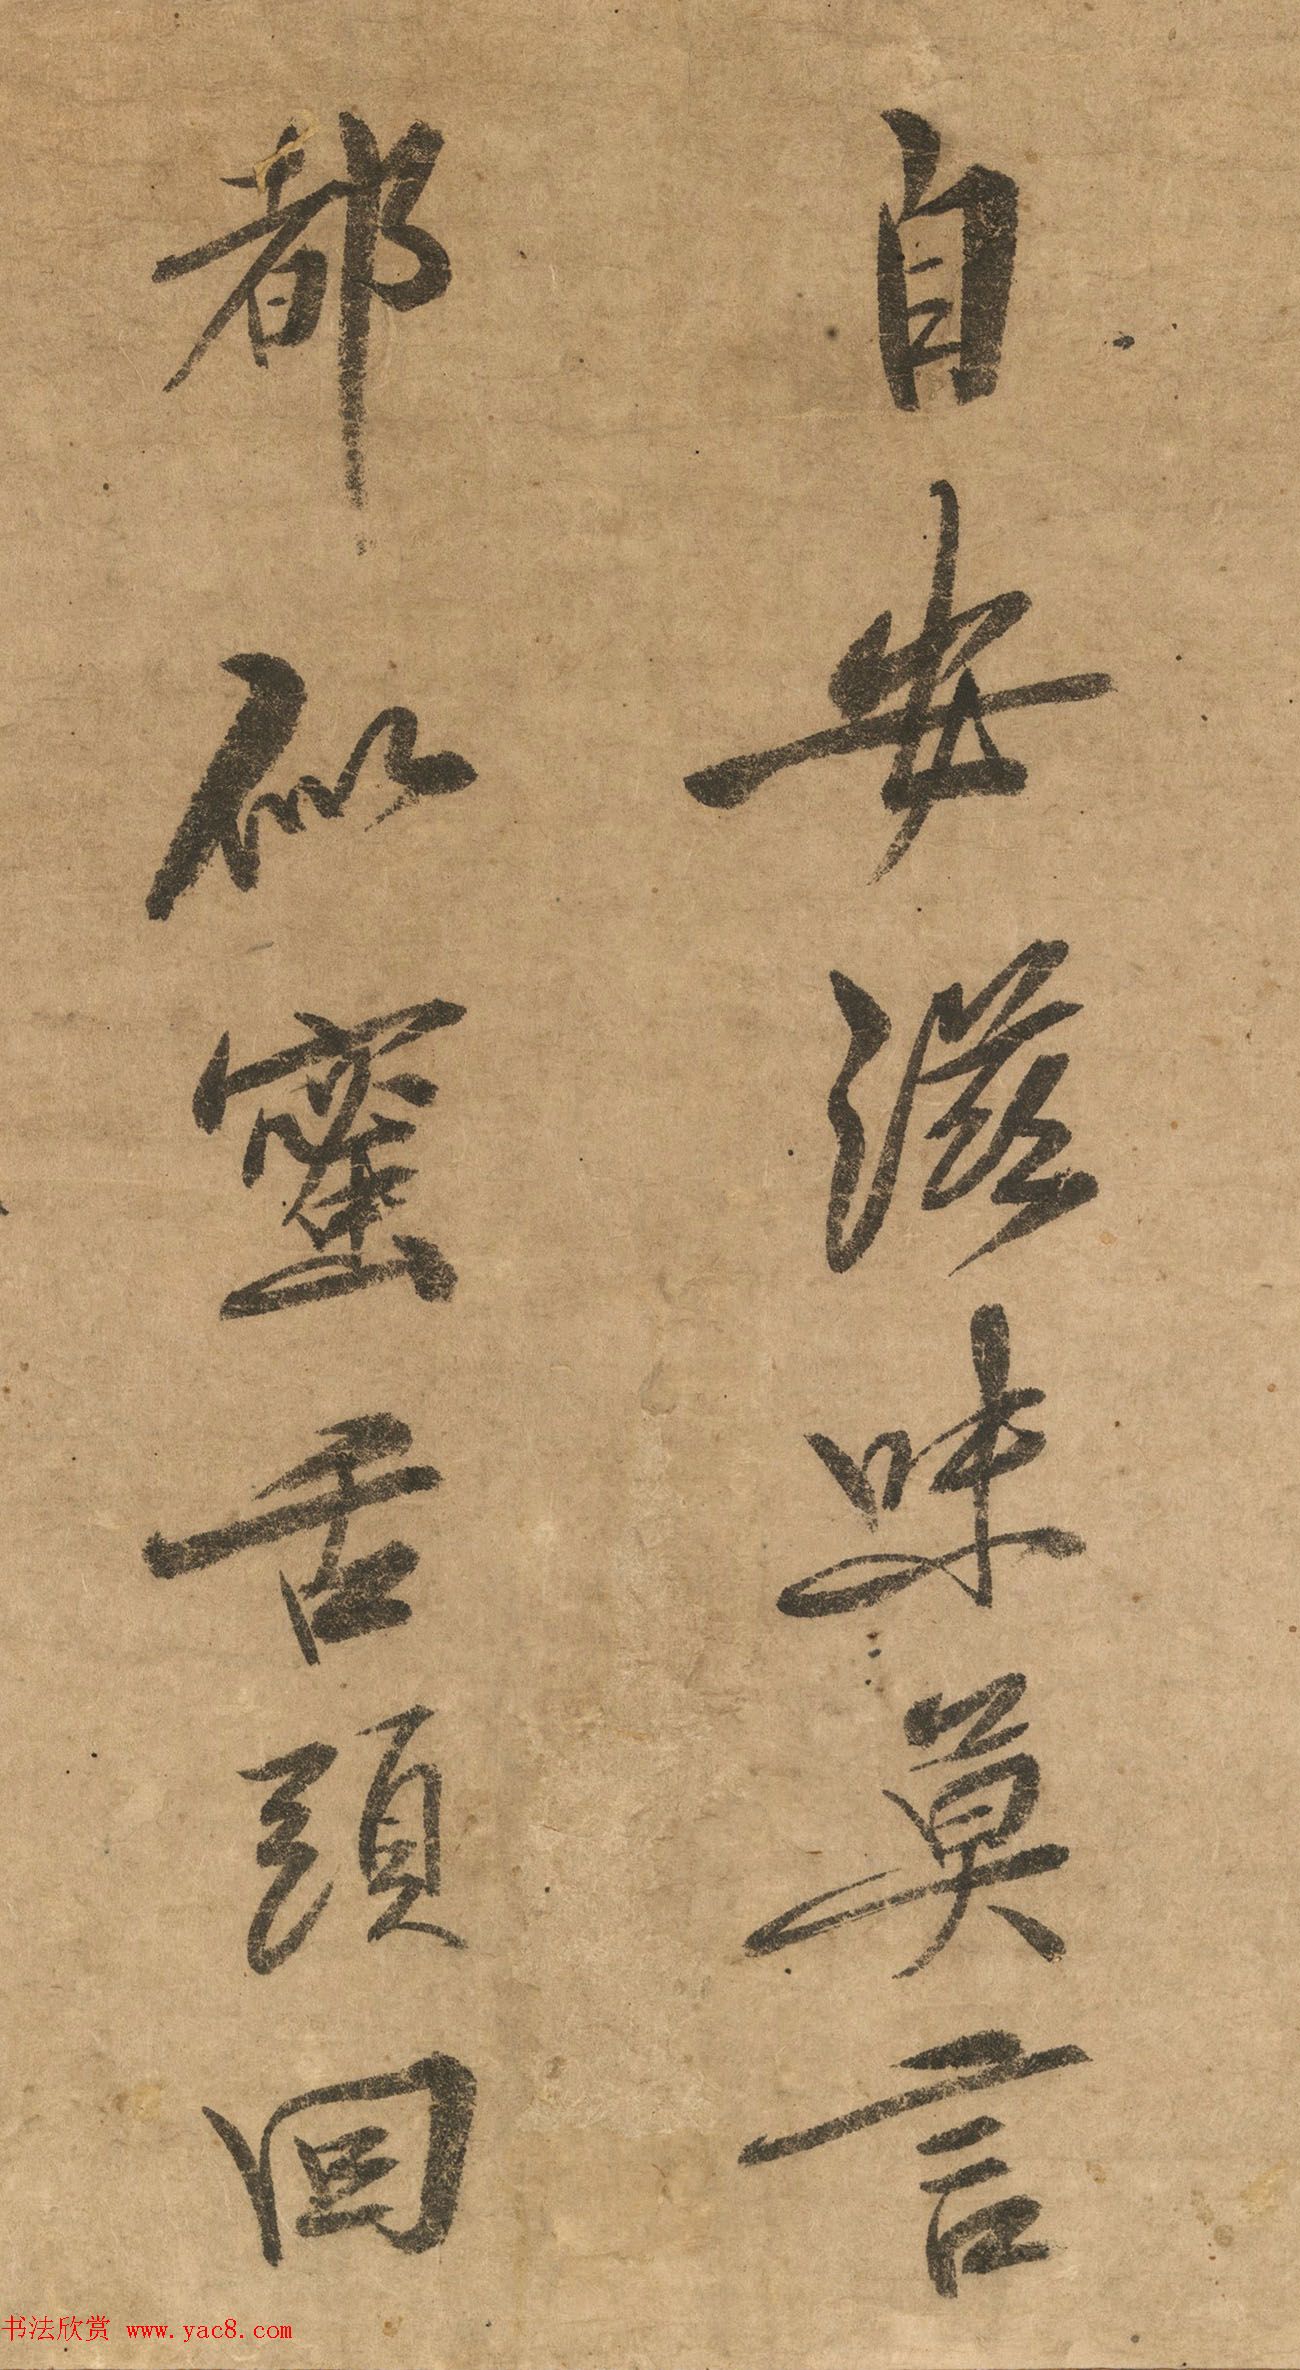 自安滋味莫言
都似蜜舌頭回
书法欣赏 www.yac8.com